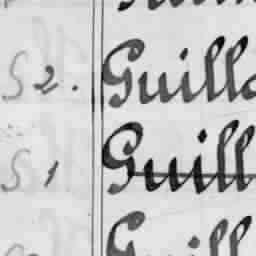 S 2. Guilla
S 1 Guill
Guill